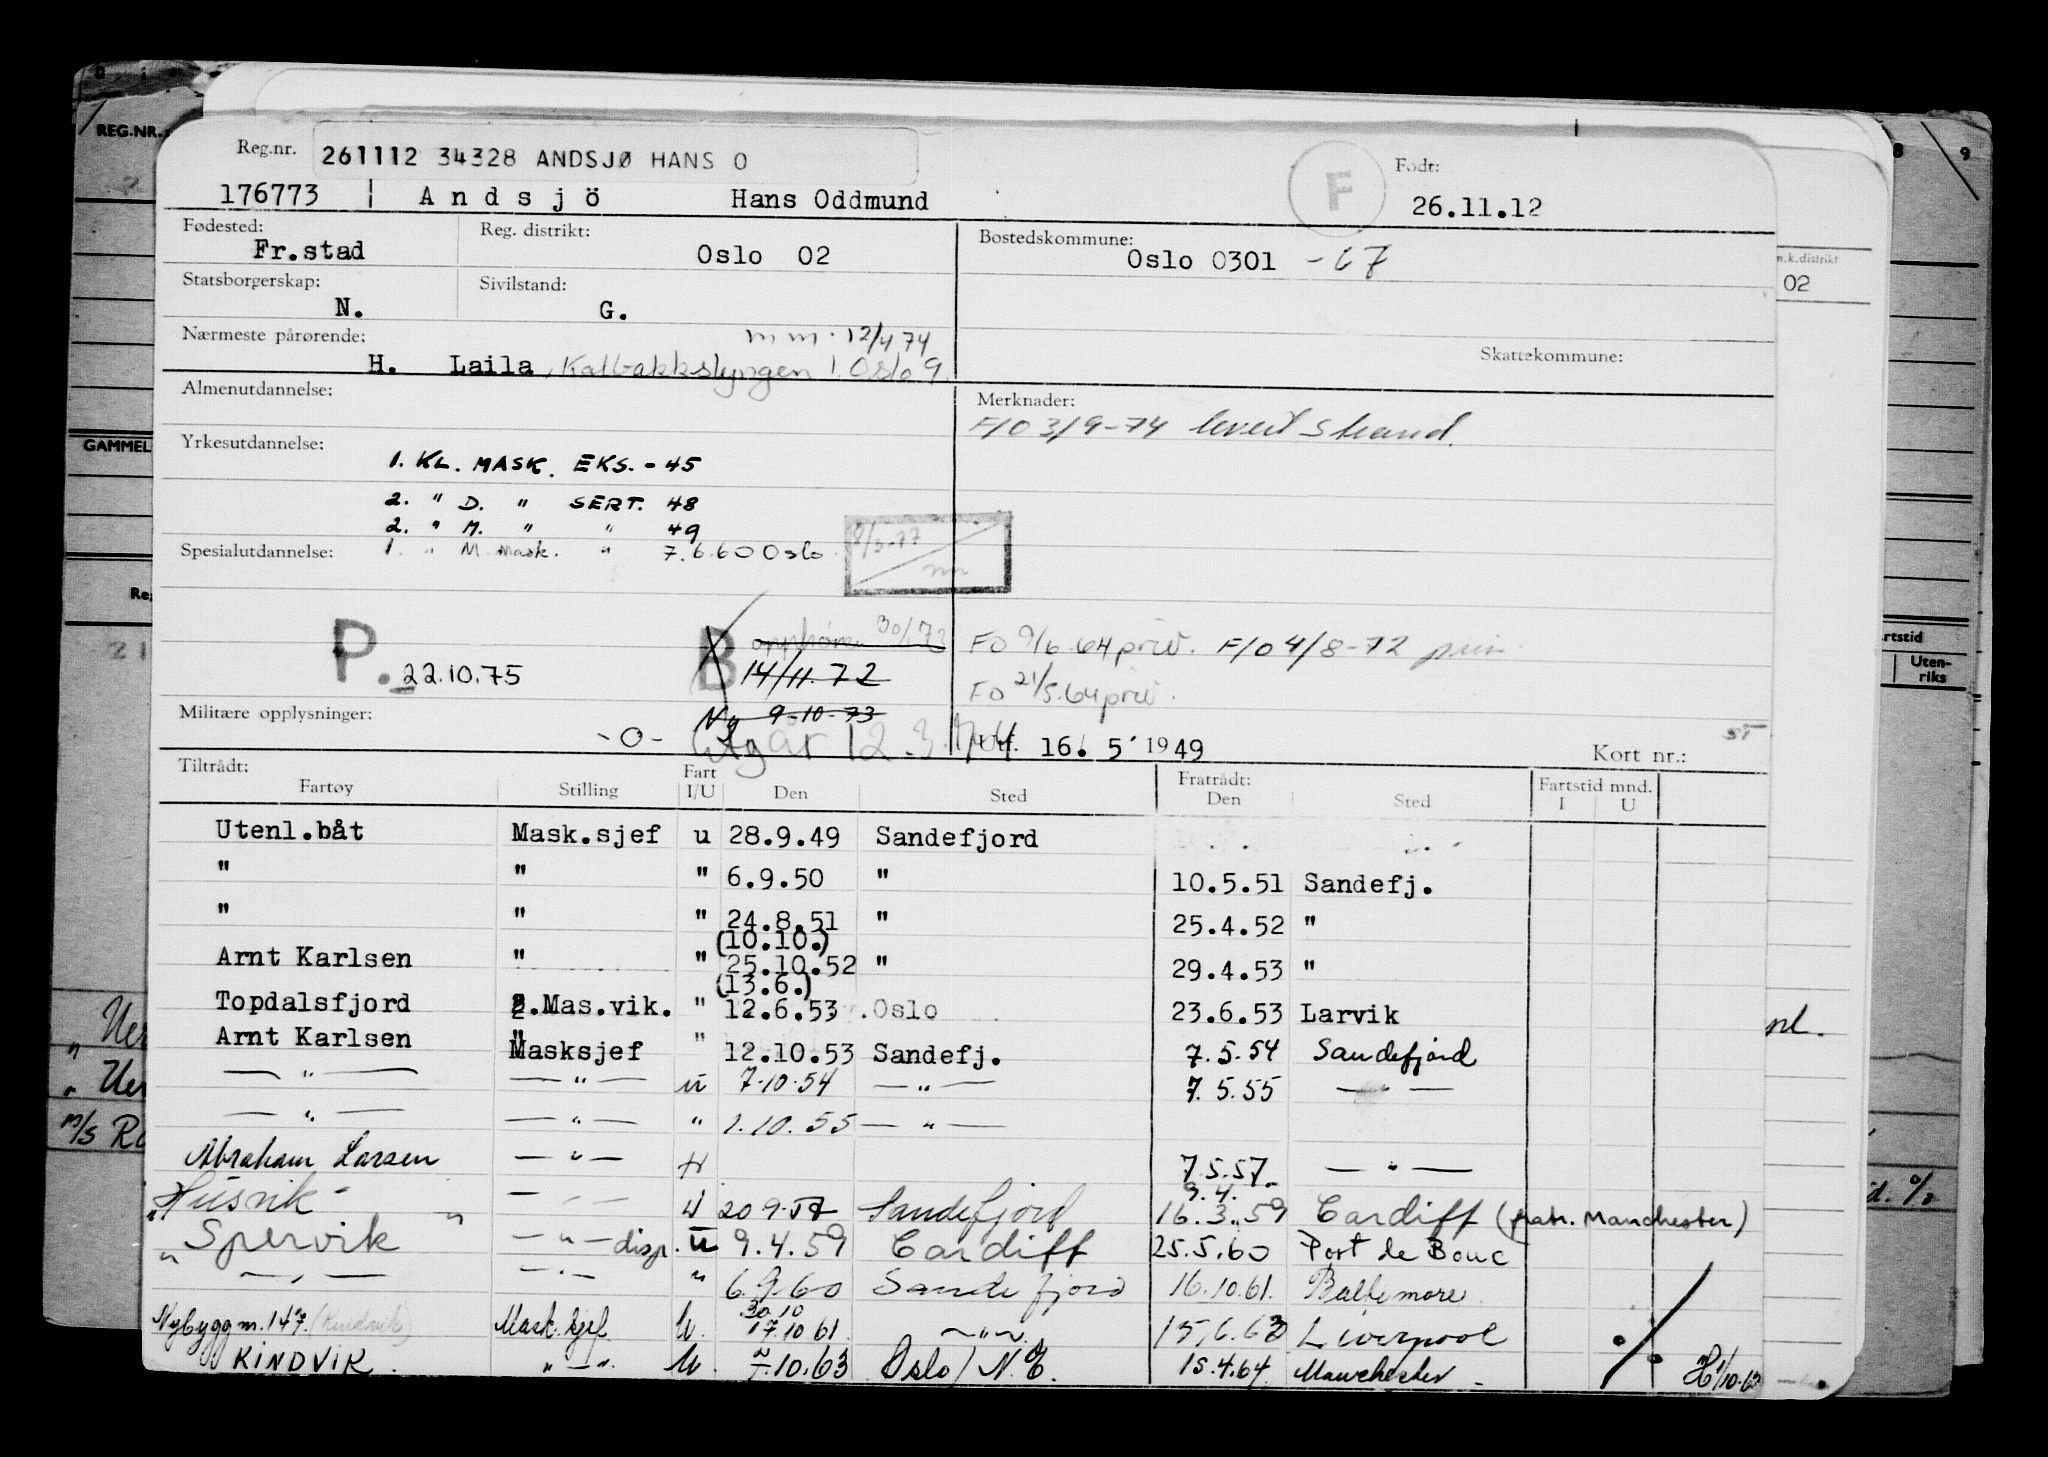 REG.NR.
Reg.nr. 261112 34328 ANDSJØ HANS O
F
Født:
176773 Andsjö Hans Oddmund 26.11.12
Fødested: Fr.stad
Reg. distrikt: Oslo 02
Bostedskommune: Oslo 0301 - 67
m.k.distrikt
02
Statsborgerskap: N.
Sivilstand: G.
Nærmeste pårørende: m m. 12/4 74
H. Laila, Kalbakkslyngen 1. Oslo 9.
Skattekommune:
Almenutdannelse:
Merknader:
F/O 3/9-74 levert Strand.
GAMMEL
Yrkesutdannelse:
1. KL. MASK. EKS. - 45
2. " D. " SERT. 48
2. " M. " " 49
Spesialutdannelse: 1. " M. Mask. " 7.6.60 Oslo.
P. 22.10.75
B
14/11.72
FO 9/6.64 priv. F/O 4/8-72 priv.
FO 21/5.64 priv.
Ny 9-10-73
Militære opplysninger: -0-
Utgår 12.3.
Utf. 16. 5. 1949
Kort nr.:
rtstid
Uten-
riks
Tiltrådt:
Fartøy Stilling Fart I/U Den Sted Fratrådt: Den Sted Fartstid mnd. I U
Utenl.båt Mask.sjef u 28.9.49 Sandefjord
" " " 6.9.50 " 10.5.51 Sandefj.
" " " 24.8.51 " 25.4.52 "
(10.10.)
Arnt Karlsen " " 25.10.52 " 29.4.53 "
(13.6.)
Topdalsfjord 2.Mas.vik. " 12.6.53 Oslo 23.6.53 Larvik
Arnt Karlsen Masksjef " 12.10.53 Sandefj. 7.5.54 Sandefjord
— " — — " — u 7.10.54 — " — 7.5.55 — " —
— " — — " — " 1.10.55 — " —
Abraham Larsen — " — 7.5.57 — " —
9.4.
" Husvik — " — U 20.9.57 Sandefjord 16.3.59 Cardiff (fratr. Manchester)
" Spervik — " — disp. u 9.4.59 Cardiff 25.5.60 Port de Bouc
— " — — " — " 6.9.60 Sandefjord 16.10.61. Baltimore
30.10
Nybygg nr. 147. (Kindvik) Mask.sjef U. 17.10.61. — " — 15.6.63 Liverpool
KINDVIK. " — " U. 7.10.63 Oslo/N.Y. 15.4.64. Manchester